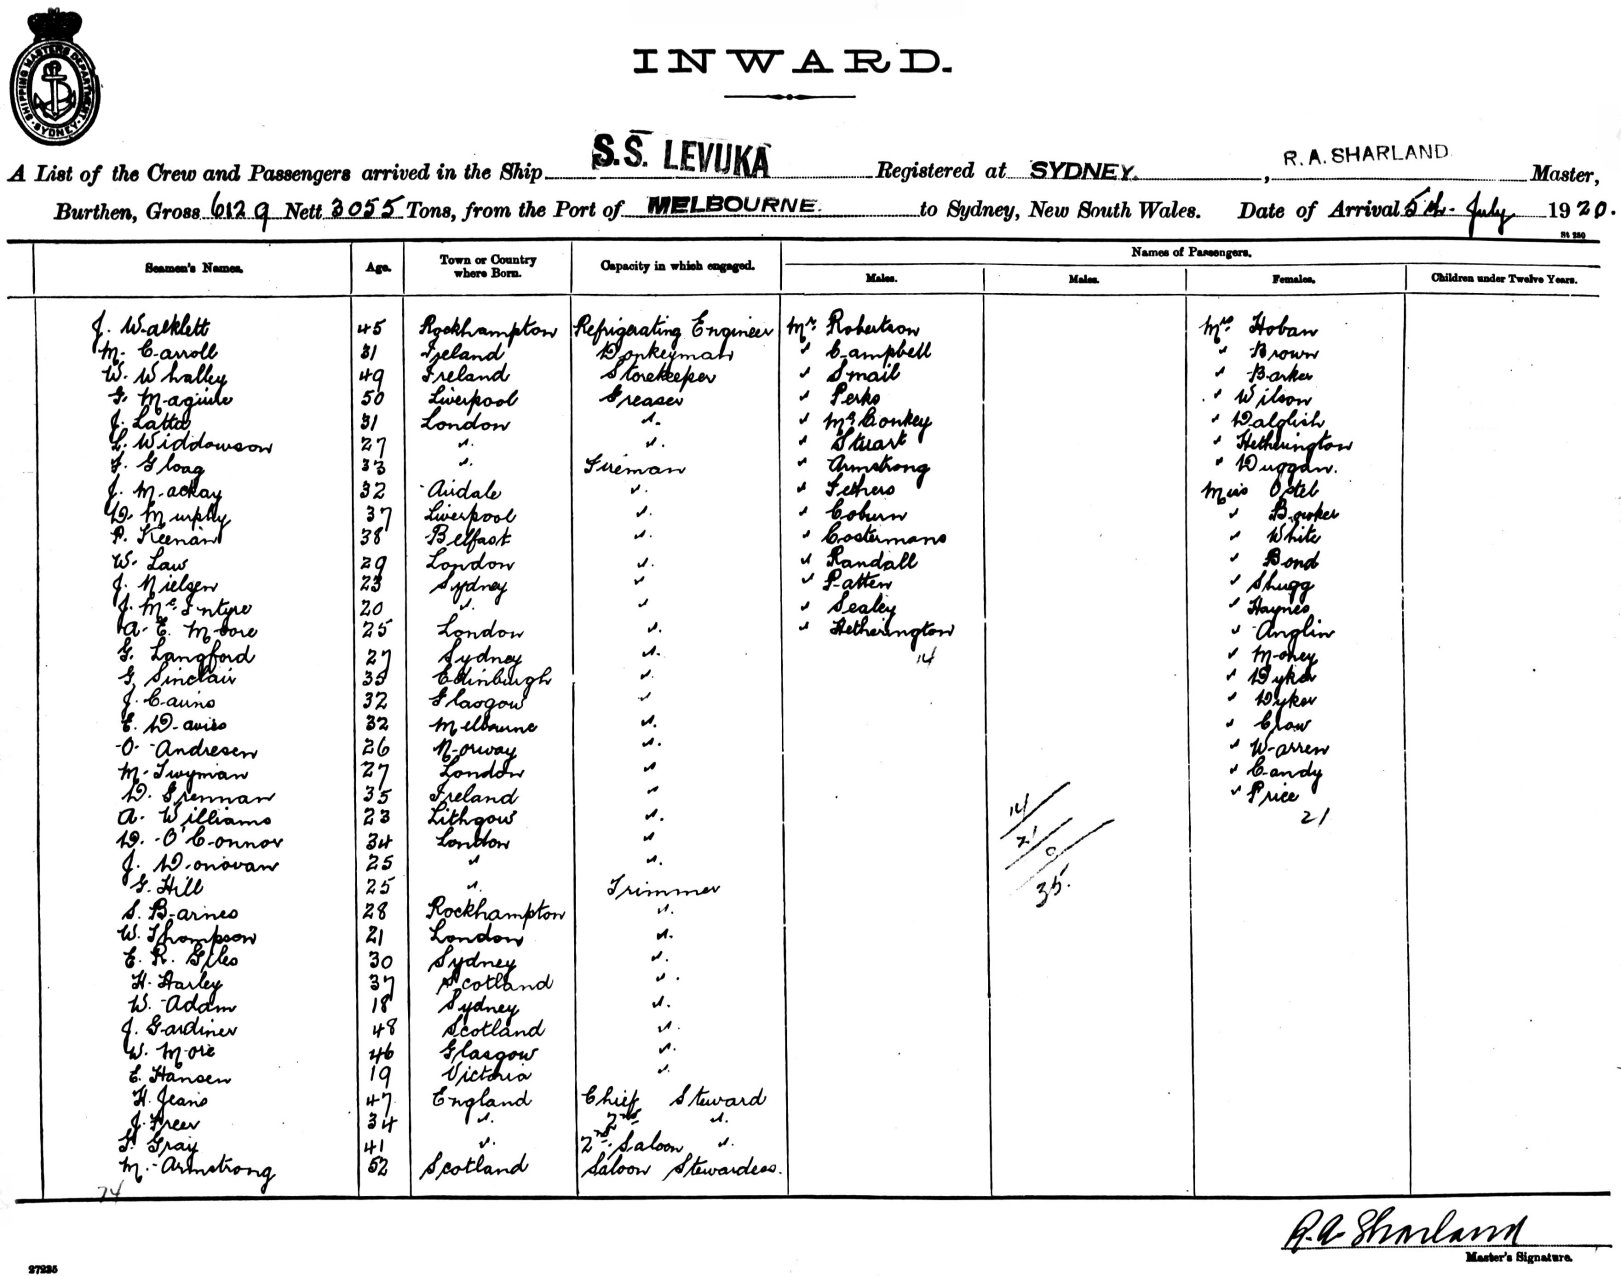 SHIPPING MASTERS DEPARTMENT
SYDNEY
INWARD.
A List of the Crew and Passengers arrived in the Ship S.S. LEVUKA Registered at SYDNEY, R. A. SHARLAND Master,
Burthen, Gross 6129 Nett 3055 Tons, from the Port of MELBOURNE. to Sydney, New South Wales. Date of Arrival 5th July 1920.
St 250
Seamen's Names. Age. Town or Country where Born. Capacity in which engaged. Names of Passengers.
Males. Males. Females. Children under Twelve Years.
J. Walklett 45 Rockhampton Refrigerating Engineer Mr. Robertson Mrs Hoban
M. Carroll 31 Ireland Donkeyman " Campbell " Brown
W. Whalley 49 Ireland Storekeeper " Smail " Barker
G. Maguire 50 Liverpool Greaser " Perks " Wilson
J. Latta 31 London " " McConkey " Dalglish
L. Widdowson 27 " " " Stuart " Hetherington
F. Gloag 33 " Fireman " Armstrong " Duggan.
J. Mackay 32 Airdale " " Fethers Miss Ostel
D. Murphy 37 Liverpool " " Coburn " Bowker
P. Keenan 38 Belfast " " Costermans " White
W. Law 29 London " " Randall " Bond
J. Nielsen 23 Sydney " " Patten " Shugg
J. McIntyre 20 " " " Sealey " Haynes
A. E. Moore 25 London " " Hetherington " Anglin
G. Langford 27 Sydney " 14 " Money
G. Sinclair 35 Edinburgh " " Dyker
J. Cairns 32 Glasgow " " Dyker
E. Davies 32 Melbourne " " Crow
O. Andresen 26 Norway " " Warren
M. Twyman 27 London " " Candy
D. Grennan 35 Ireland " " Price
A. Williams 23 Lithgow " 14 21
D. O'Connor 34 London " 21
J. Donovan 25 " " 0
G. Hill 25 " Trimmer 35.
S. Barnes 28 Rockhampton "
W. Thompson 21 London "
E. R. Giles 30 Sydney "
H. Harley 37 Scotland "
W. Adam 18 Sydney "
J. Gardiner 48 Scotland "
W. More 46 Glasgow "
E. Hansen 19 Victoria "
H. Jeans 47 England Chief Steward
J. Freer 34 " 2nd "
F. Gray 41 " 2nd Saloon "
M. Armstrong 52 Scotland Saloon Stewardess.
74
R. A. Sharland
Master's Signature.
27235